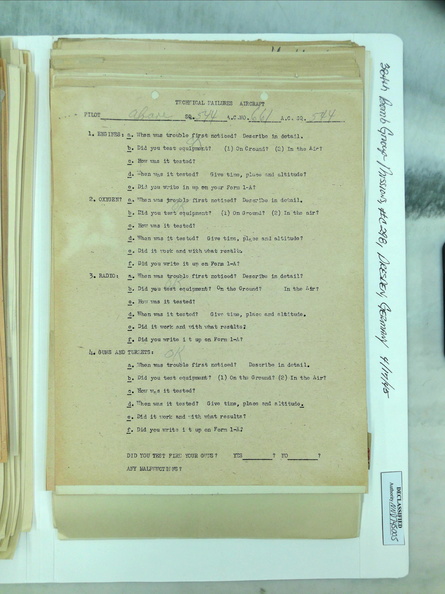 TECHNICAL FAILURES AIRCRAFT
PILOT SQ. 544 A.C.NO. 661 A.C. SQ. 544
1. ENGINES: a. When was trouble first noticed? Describe in detail.
b. Did you test equipment? (1) On Ground? (2) In the Air?
c. How was it tested?
d. When was it tested? Give time, place and altitude?
e. Did you write in up on your Form 1-A?
2. OXYGEN: a. When was trouble first noticed? Describe in detail.
b. Did you test equipment? (1) On Ground? (2) In the air?
c. How was it tested?
d. When was it tested? Give time, place and altitude?
e. Did it work and with what results.
f. Did you write it up on Form 1-A?
3. RADIO: a. When was trouble first noticed? Describe in detail?
b. Did you test equipment? On the Ground? In the Air?
c. How was it tested?
d. When was it tested? Give time, place and altitude.
e. Did it work and with what results?
f. Did you write i t up on Form 1-A?
4. GUNS AND TURRETS: OK
a. When was trouble first noticed? Describe in detail.
b. Did you test equipment? (1) On the Ground? (2) In the Air?
c. How was it tested?
d. When was it tested? Give time, place and altitude.
e. Did it work and with what results?
f. Did you write i t up on Form 1-A?
DID YOU TEST FIRE YOUR GUNS? YES ? NO ?
ANY MALFUNCTIONS?
384th Bomb Group Missions, #C298, Dresden, Germany 4/17/45
DECLASSIFIED
Authority